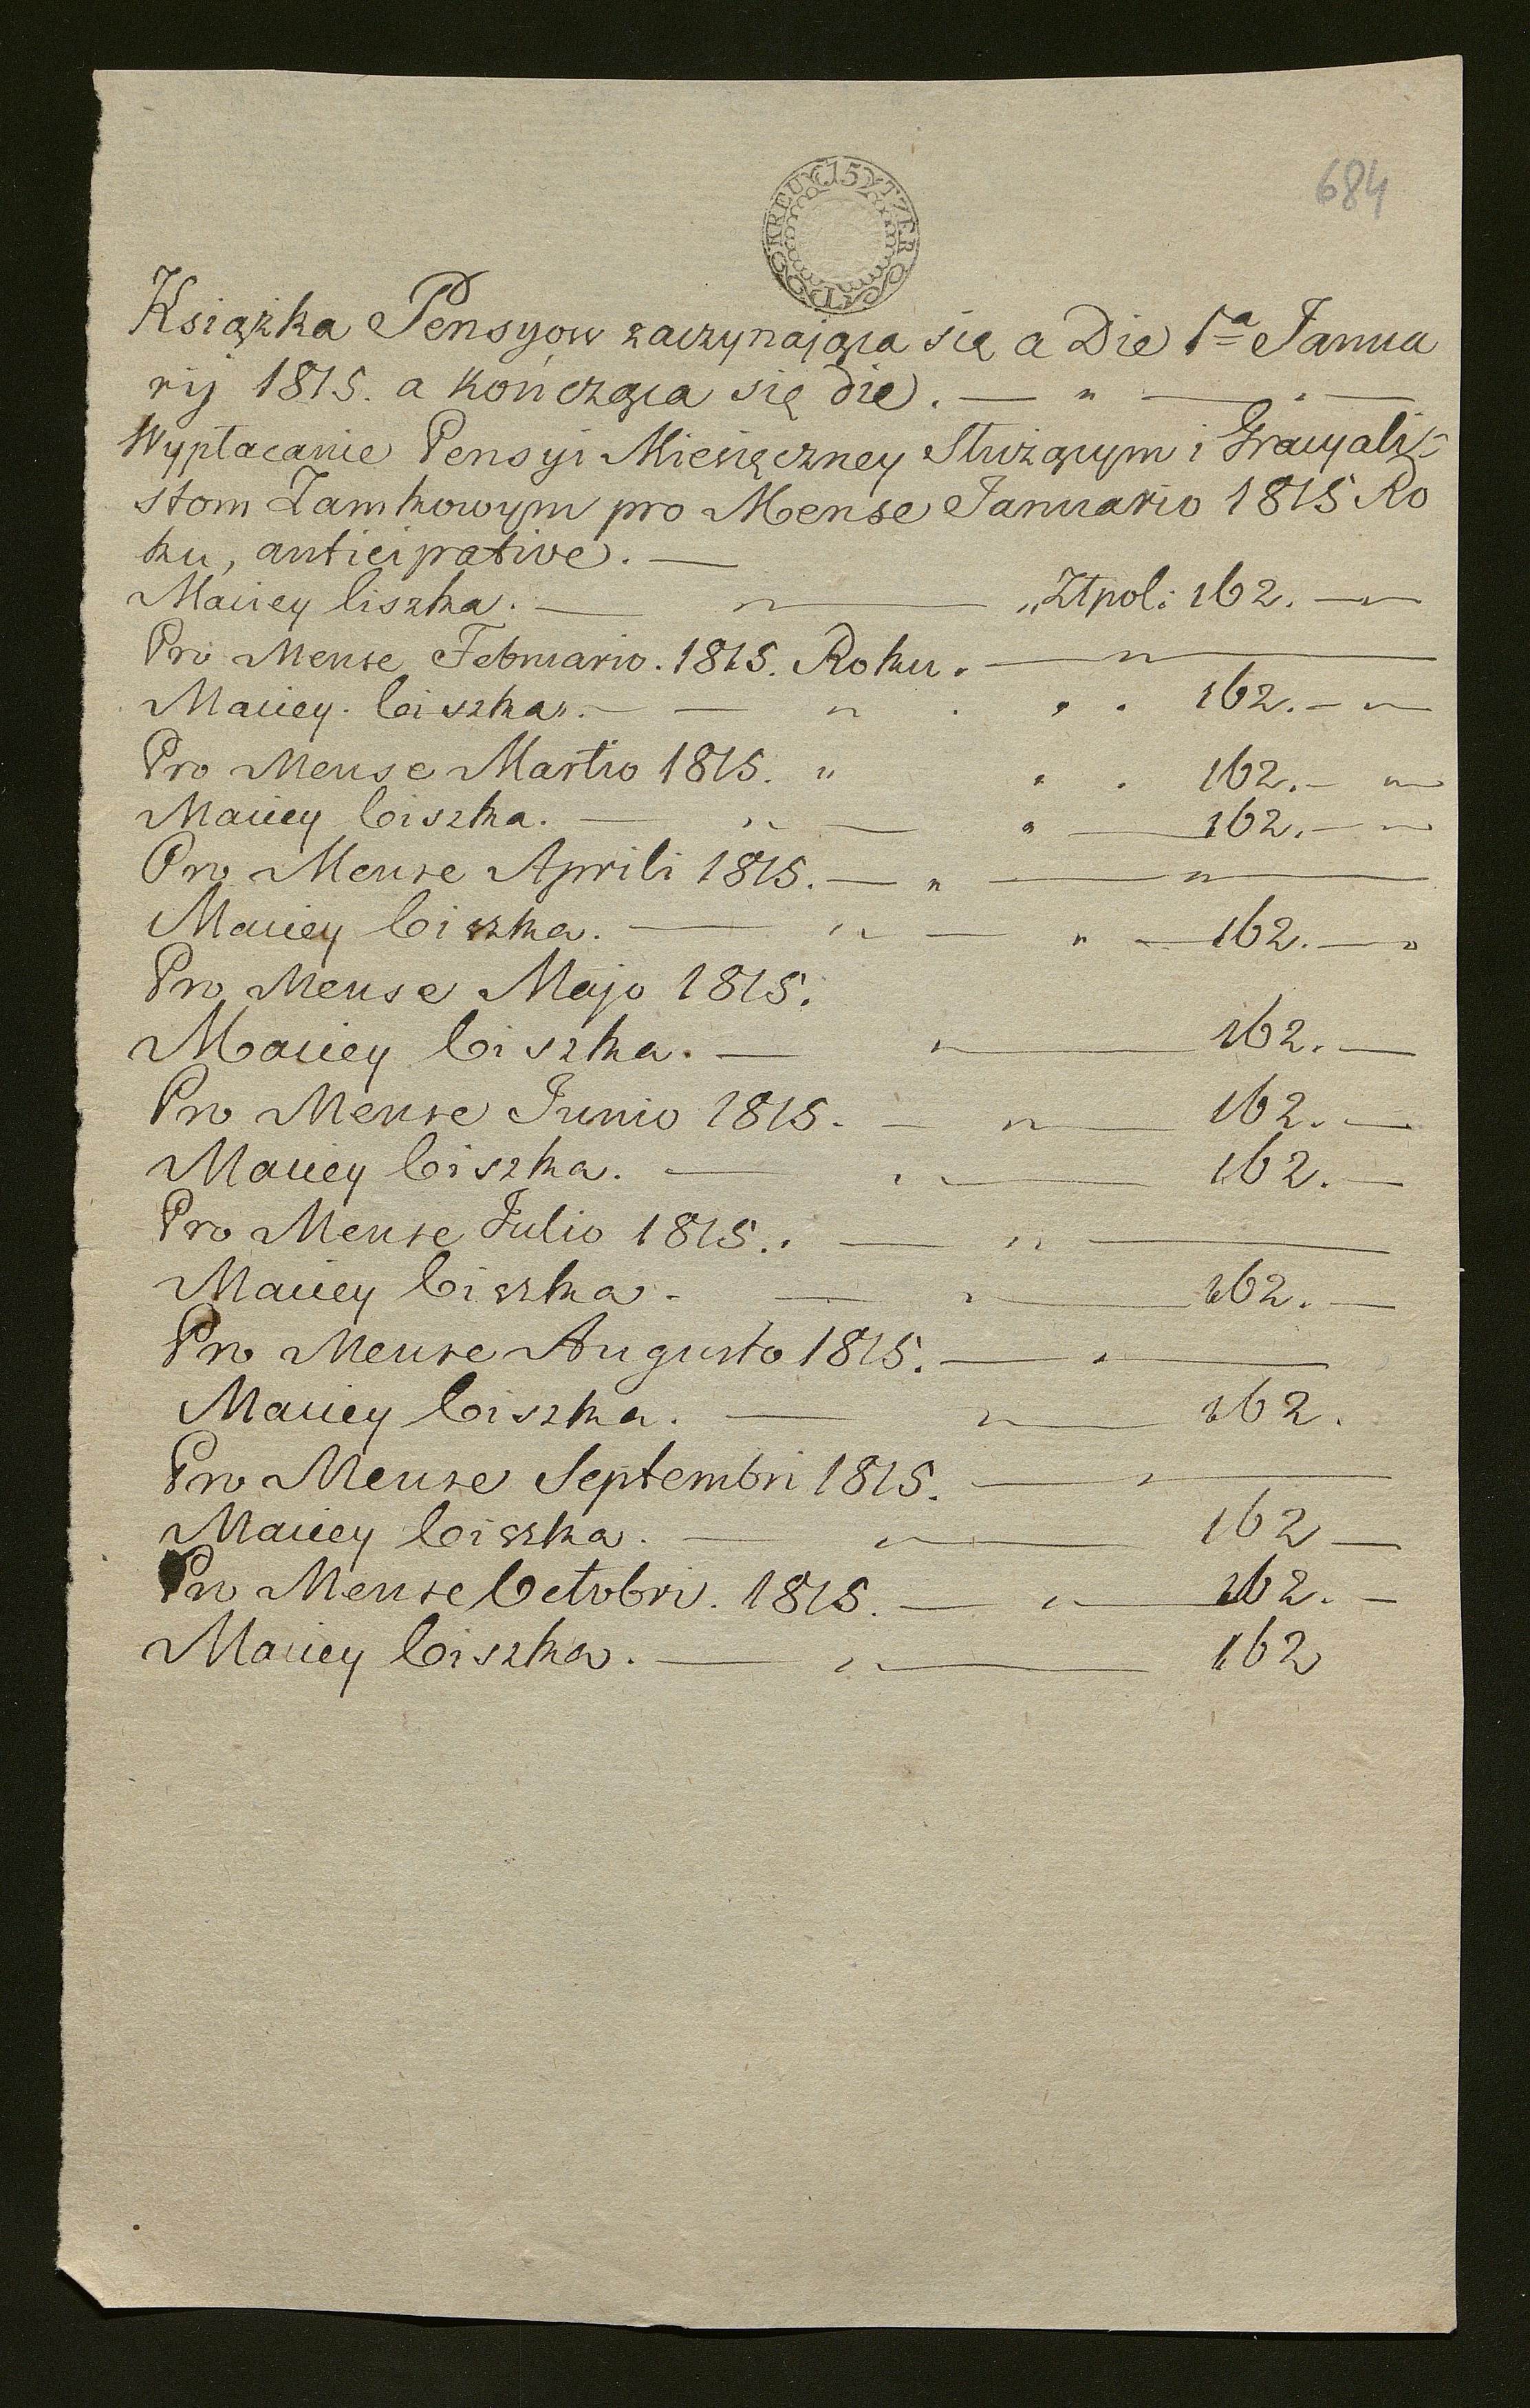 684
15 KREUTZER
Książka Pensyow zaczynaiąca się a Die 1ª Janua
rij 1815. a kończąca się die. — " — . —
Wypłacanie Pensyi Miesięczney Służącym i Gracyali-
stom Zamkowym pro Mense Januario 1815 Ro
ku, anticipative. —
Maciey Ciszka. — " — „Złpol: 162. — "
Pro Mense Februario. 1815. Roku. — " —
Maciey Ciszka. — — " . . . 162. — "
Pro Mense Martio 1815. " . . 162. — "
Maciey Ciszka. — " — " — 162. — "
Pro Mense Aprili 1815. — " — " —
Maciey Ciszka. — " — " — 162. — "
Pro Mense Majo 1815.
Maciey Ciszka. — " — 162. —
Pro Mense Junio 1815. — " — 162. —
Maciey Ciszka. — " — 162. —
Pro Mense Julio 1815.. — " —
Maciey Ciszka. — " — 162. —
Pro Mense Augusto 1815. — " —
Maciey Ciszka. — " — 162.
Pro Mense Septembri 1815. — " —
Maciey Ciszka. — " — 162 —
Pro Mense Octobri. 1815. — " — 162. —
Maciey Ciszka. — " — 162